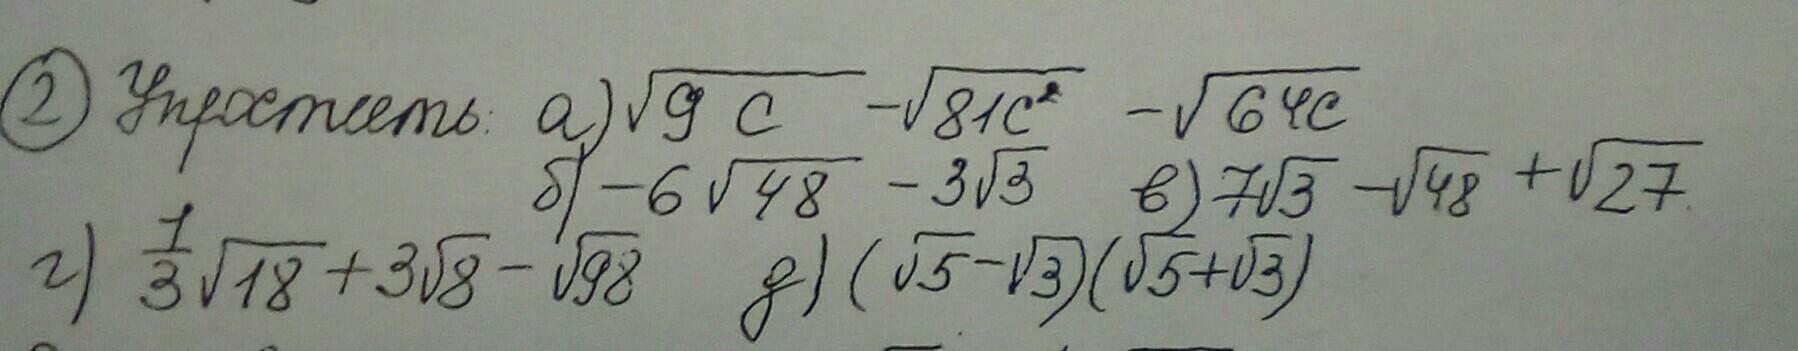 ② Упростить: а) √9c - √81c² - √64c
б) -6√48 - 3√3 в) 7√3 - √48 + √27
г) 1/3√18 + 3√8 - √98 д) (√5 - √3)(√5 + √3)